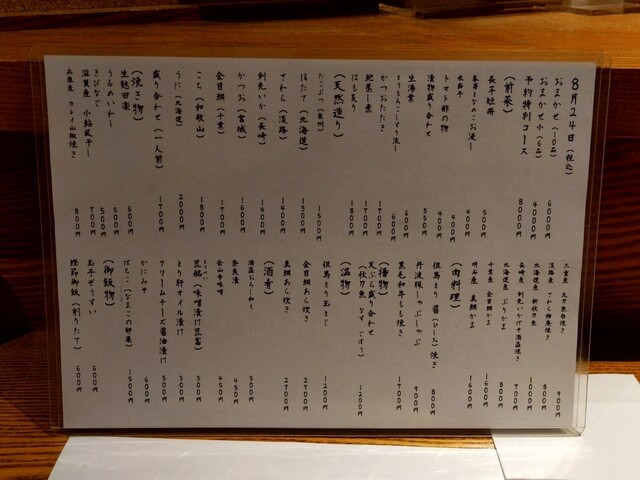 8月24日(税込)
おまかせ(10品) 6000円
おまかせ小(6品) 4000円
予約特別コース 8000円
(前菜)
長芋短冊 500円
春菊となめこお浸し 400円
水茄子 400円
トマト酢の物 400円
漬物盛り合わせ 550円
生湯葉 600円
とうもろこしすり流し 600円
かつおたたき 1700円
地蒸し煮 1700円
はも炙り 1800円
(天然造り)
たこぶつ(泉州) 1500円
ほたて(北海道) 1300円
さわら(淡路) 1400円
剣先いか(長崎) 1400円
かつお(宮城) 1600円
金目鯛(千葉) 1700円
こち(和歌山) 1800円
うに(北海道) 2000円
盛り合わせ(一人前) 1700円
(焼き物)
生麩田楽 600円
うるめいわし 500円
きびなご 500円
滋賀産 小鮎風干し 700円
兵庫産 カレイ山椒焼き 800円
三重産 太刀魚白焼き 900円
淡路産 さわら柚庵焼き 800円
北海道産 新秋刀魚 1000円
長崎産 剣先いかげそ酒盗焼き 700円
北海道産 ぶりかま 800円
千葉産 金目鯛かま 1600円
明石産 真鯛かま 1600円
(肉料理)
但馬とり 醤(ひしお)焼き 800円
丹波豚しゃぶしゃぶ 900円
黒毛和牛もも焼き 1700円
(揚物)
天ぷら盛り合わせ
(秋刀魚 なす ごぼう) 1200円
(温物)
但馬とり玉とじ 1200円
金目鯛あら炊き 2700円
真鯛あら炊き 2700円
(酒肴)
酒盗おろし和え 500円
奈良漬 450円
金山寺味噌 450円
豆腐(味噌漬け豆富) 500円
とり肝オイル漬け 500円
クリームチーズ醤油漬け 500円
かにみそ 600円
ばちこ(なまこの卵巣) 1500円
(御飯物)
玉子ぞうすい 600円
鰹節御飯(削りたて) 600円